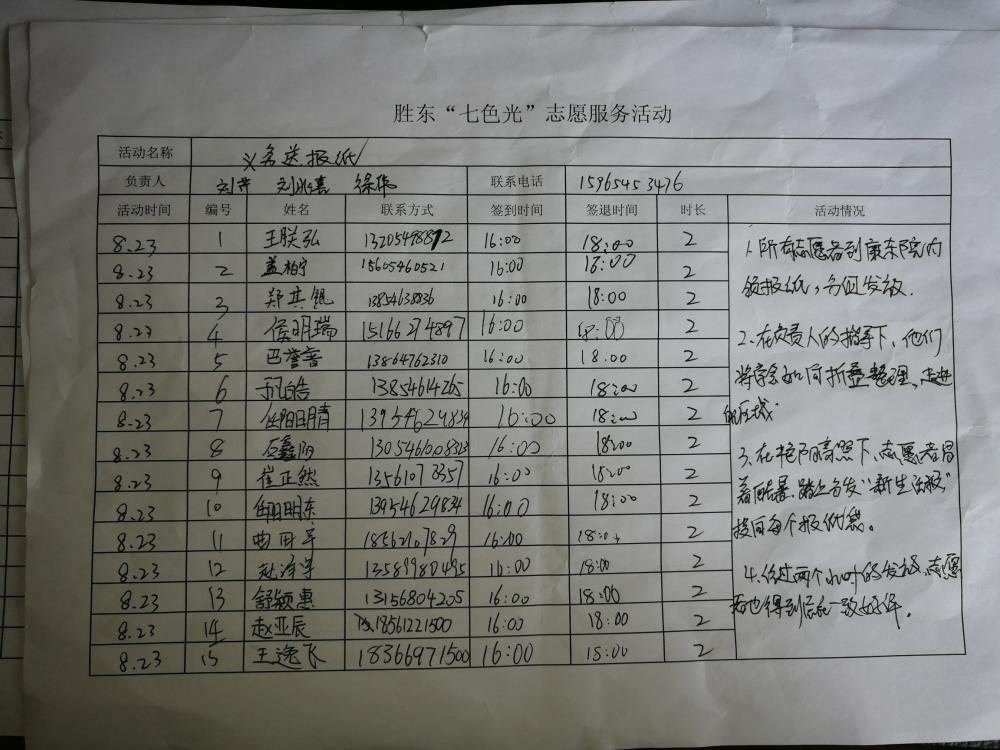 胜东“七色光”志愿服务活动
活动名称 义务送报纸
负责人 刘萍 刘兆喜 徐伟 联系电话 15965453476
活动时间 编号 姓名 联系方式 签到时间 签退时间 时长 活动情况
8.23 1 王朕弘 13205498812 16:00 18:00 2
8.23 2 盖柏宁 15605460521 16:00 18:00 2
8.23 3 郑其锟 13854638836 16:00 18:00 2
8.23 4 侯明瑞 15166274897 16:00 2
8.23 5 巴誉睿 13864762310 16:00 18:00 2
8.23 6 孔皓 13854614265 16:00 18:00 2
8.23 7 任阳晴 13954629834 16:00 18:00 2
8.23 8 石鑫阳 16:00 18:00 2
8.23 9 崔正然 13561073357 16:00 18:00 2
8.23 10 任明东 13954629834 16:00 18:00 2
8.23 11 曲 18562107829 16:00 18:00 2
8.23 12 赵泽宇 13589980495 16:00 18:00 2
8.23 13 舒颖惠 13156804205 16:00 18:00 2
8.23 14 赵亚辰 18561221500 16:00 18:00 2
8.23 15 王逸飞 18366971500 16:00 18:00 2
1.所有志愿者到康东院内
领报纸,分组发放.
2.在负责人的指导下,他们
将学会如何折叠整理,走进
的区域.
3.在艳阳高照下,志愿者冒
着酷暑,踏上分发“新生活报”
投向每个报纸袋。
4.经过两个小时的发放,志愿
者也得到信 一致好评.